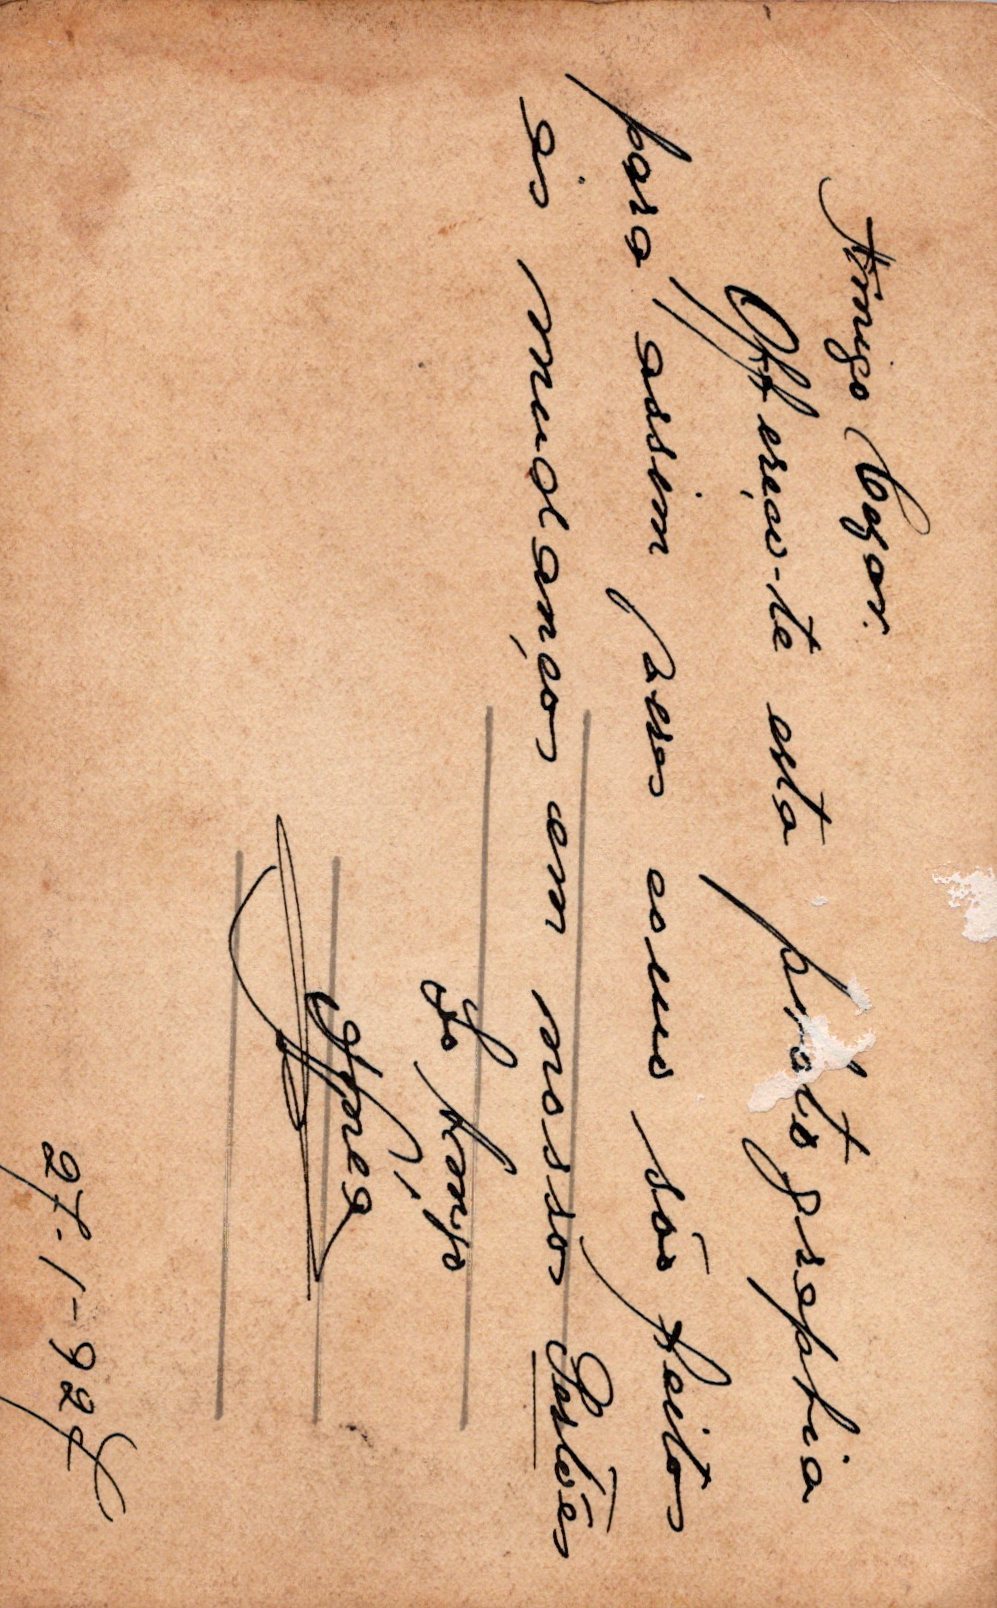 Amigo Cezar.
Offereço-te esta photographia
para assim veres como são feitas
as mudanças em nossos Sertões
Do Amigo
27-1-927